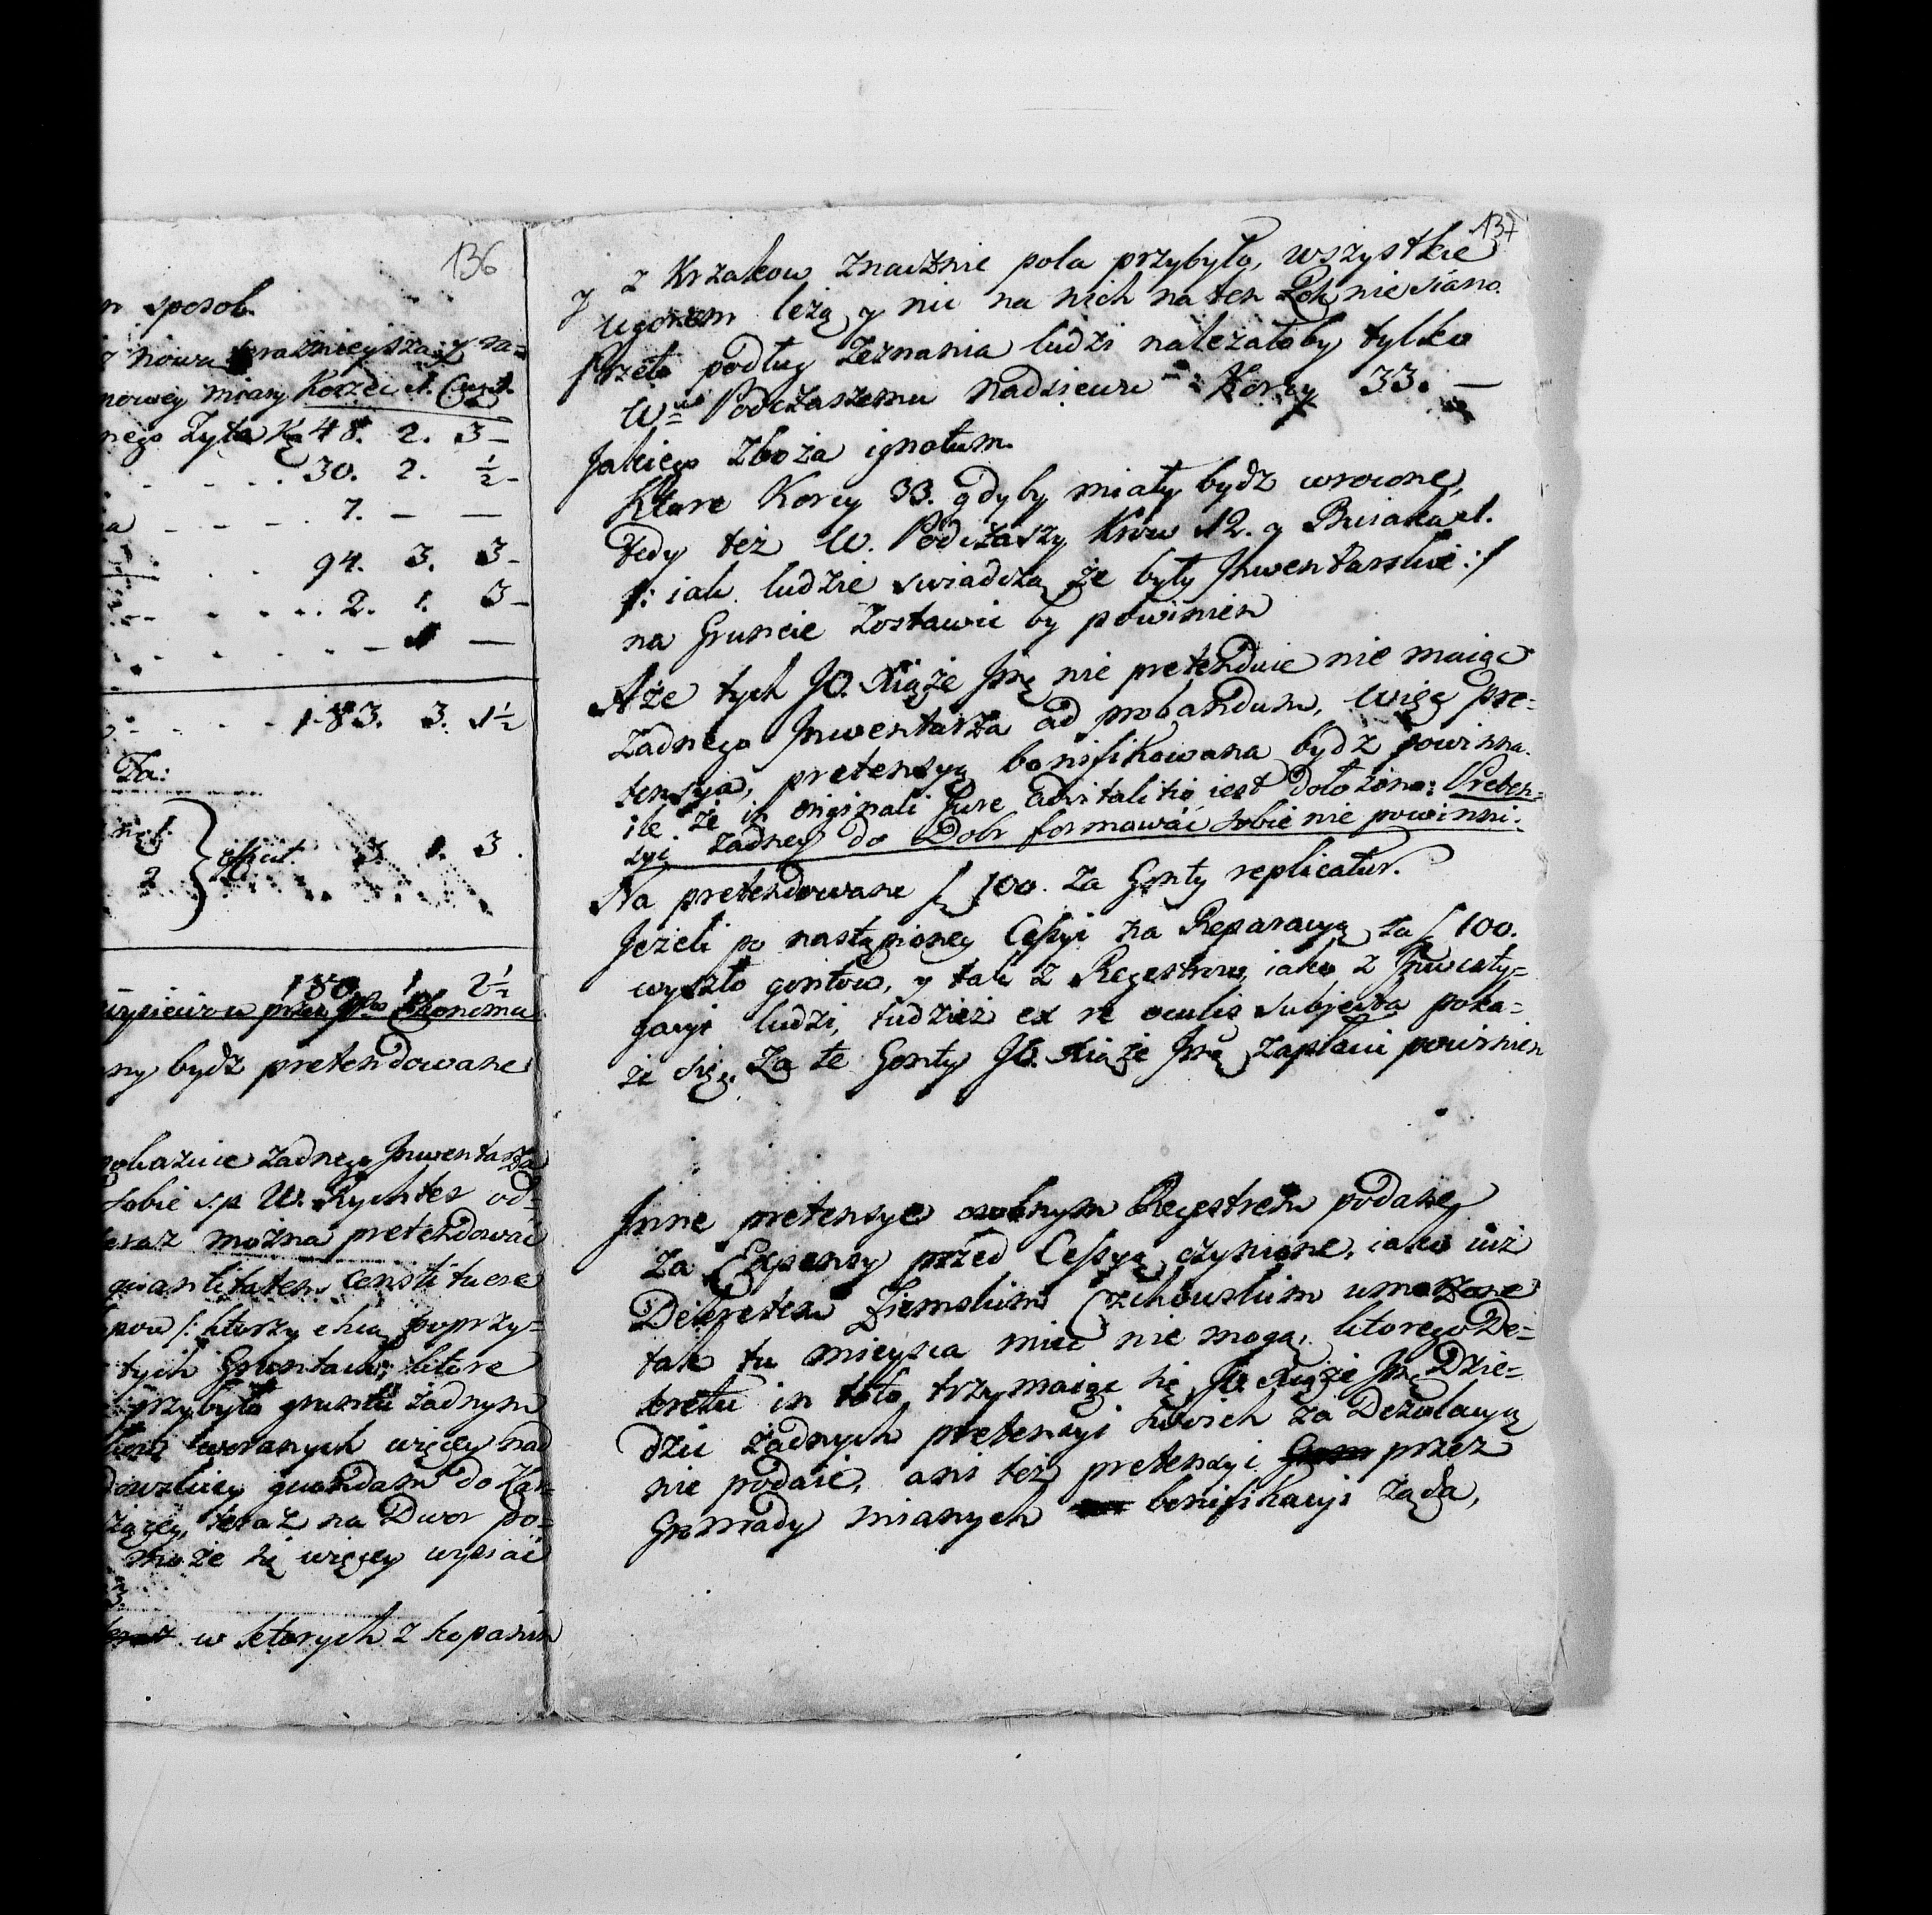 136
n sposob.
z nowu teraznieyszą y ra=
nowey miary Korzec 1. Cwiert.
nego Żyta K. 48. 2. 3 -
30. 2. ½ -
a - - - . 7. - -
94. 3. 3 -
2. 1. 3 -
1 -
183. 3. 1½
Ta:
3 1. 3.
2
180. 1. 2½
wysiewow przez Ekonoma
ny bydź pretendowane
pokazuie zadnego Inwentarza
sobie s.p W. Rychter od=
teraz można pretendować
quantitatem constituere
pow /: ktorzy chcą poprzy=
tych Gruntach, ktore
przybyło gruntu żadnym
woranych więcey nad
quondam do Kar=
teraz na Dwor po=
może się więcey wysiać
w ktorych z kopanin
137
y z Krzakow znacznie pola przybyło, wszystkie
Ugorem leżą y nic na nich na ten Rok nie siano.
Przeto podług Zeznania ludzi należałoby tylko
W. Podczaszemu Nadsiewu - Korcy 33. -
Jakiego Zboża ignotum.
Ktore Korcy 33. gdyby miały bydź wrocone,
Tedy też W. Podczaszy Krow 12. y Buiaka 1.
/: iak ludzie swiadczą że były Inwentarskie :/
na Gruncie Zostawić by powinien
A że tych JO. Xiąże Jmć nie pretenduie nie maiąc
żadnego Inwentarza ad probandum, więc pre=
tensya, pretensyą bonifikowana bydź powinna.
ile że in originali Jure advitalitio iest dołożono: Preten=
syi żadney do Dobr formować sobie nie powinni.
Na pretendowane f 100. za Gonty replicatur.
Jeżeli po nastąpioney Cessyi na Reparacyą za f 100.
wyszło gontow, y tak z Regestrow iako z Inwesty=
gacyi ludzi, tudzież ex re oculis subjecta poka=
że się. Za te Gonty JO. Xiąże Jmć zapłacić powinien
Inne pretensye osobnym Regestrem podane
za Expensy przed Cessyą czynione, iako iuż
Dekretem Ziemskim Czchowskim umorzone
tak tu mieysca mieć nie mogą, ktorego De=
kretu in toto trzymaiąc się JO. Xiąże Jmć Dzie=
dzic żadnych pretensyi swoich za Dezolacyą
nie podaie, ani też pretensyi przez
Gromady mianych bonifikacyi żąda,